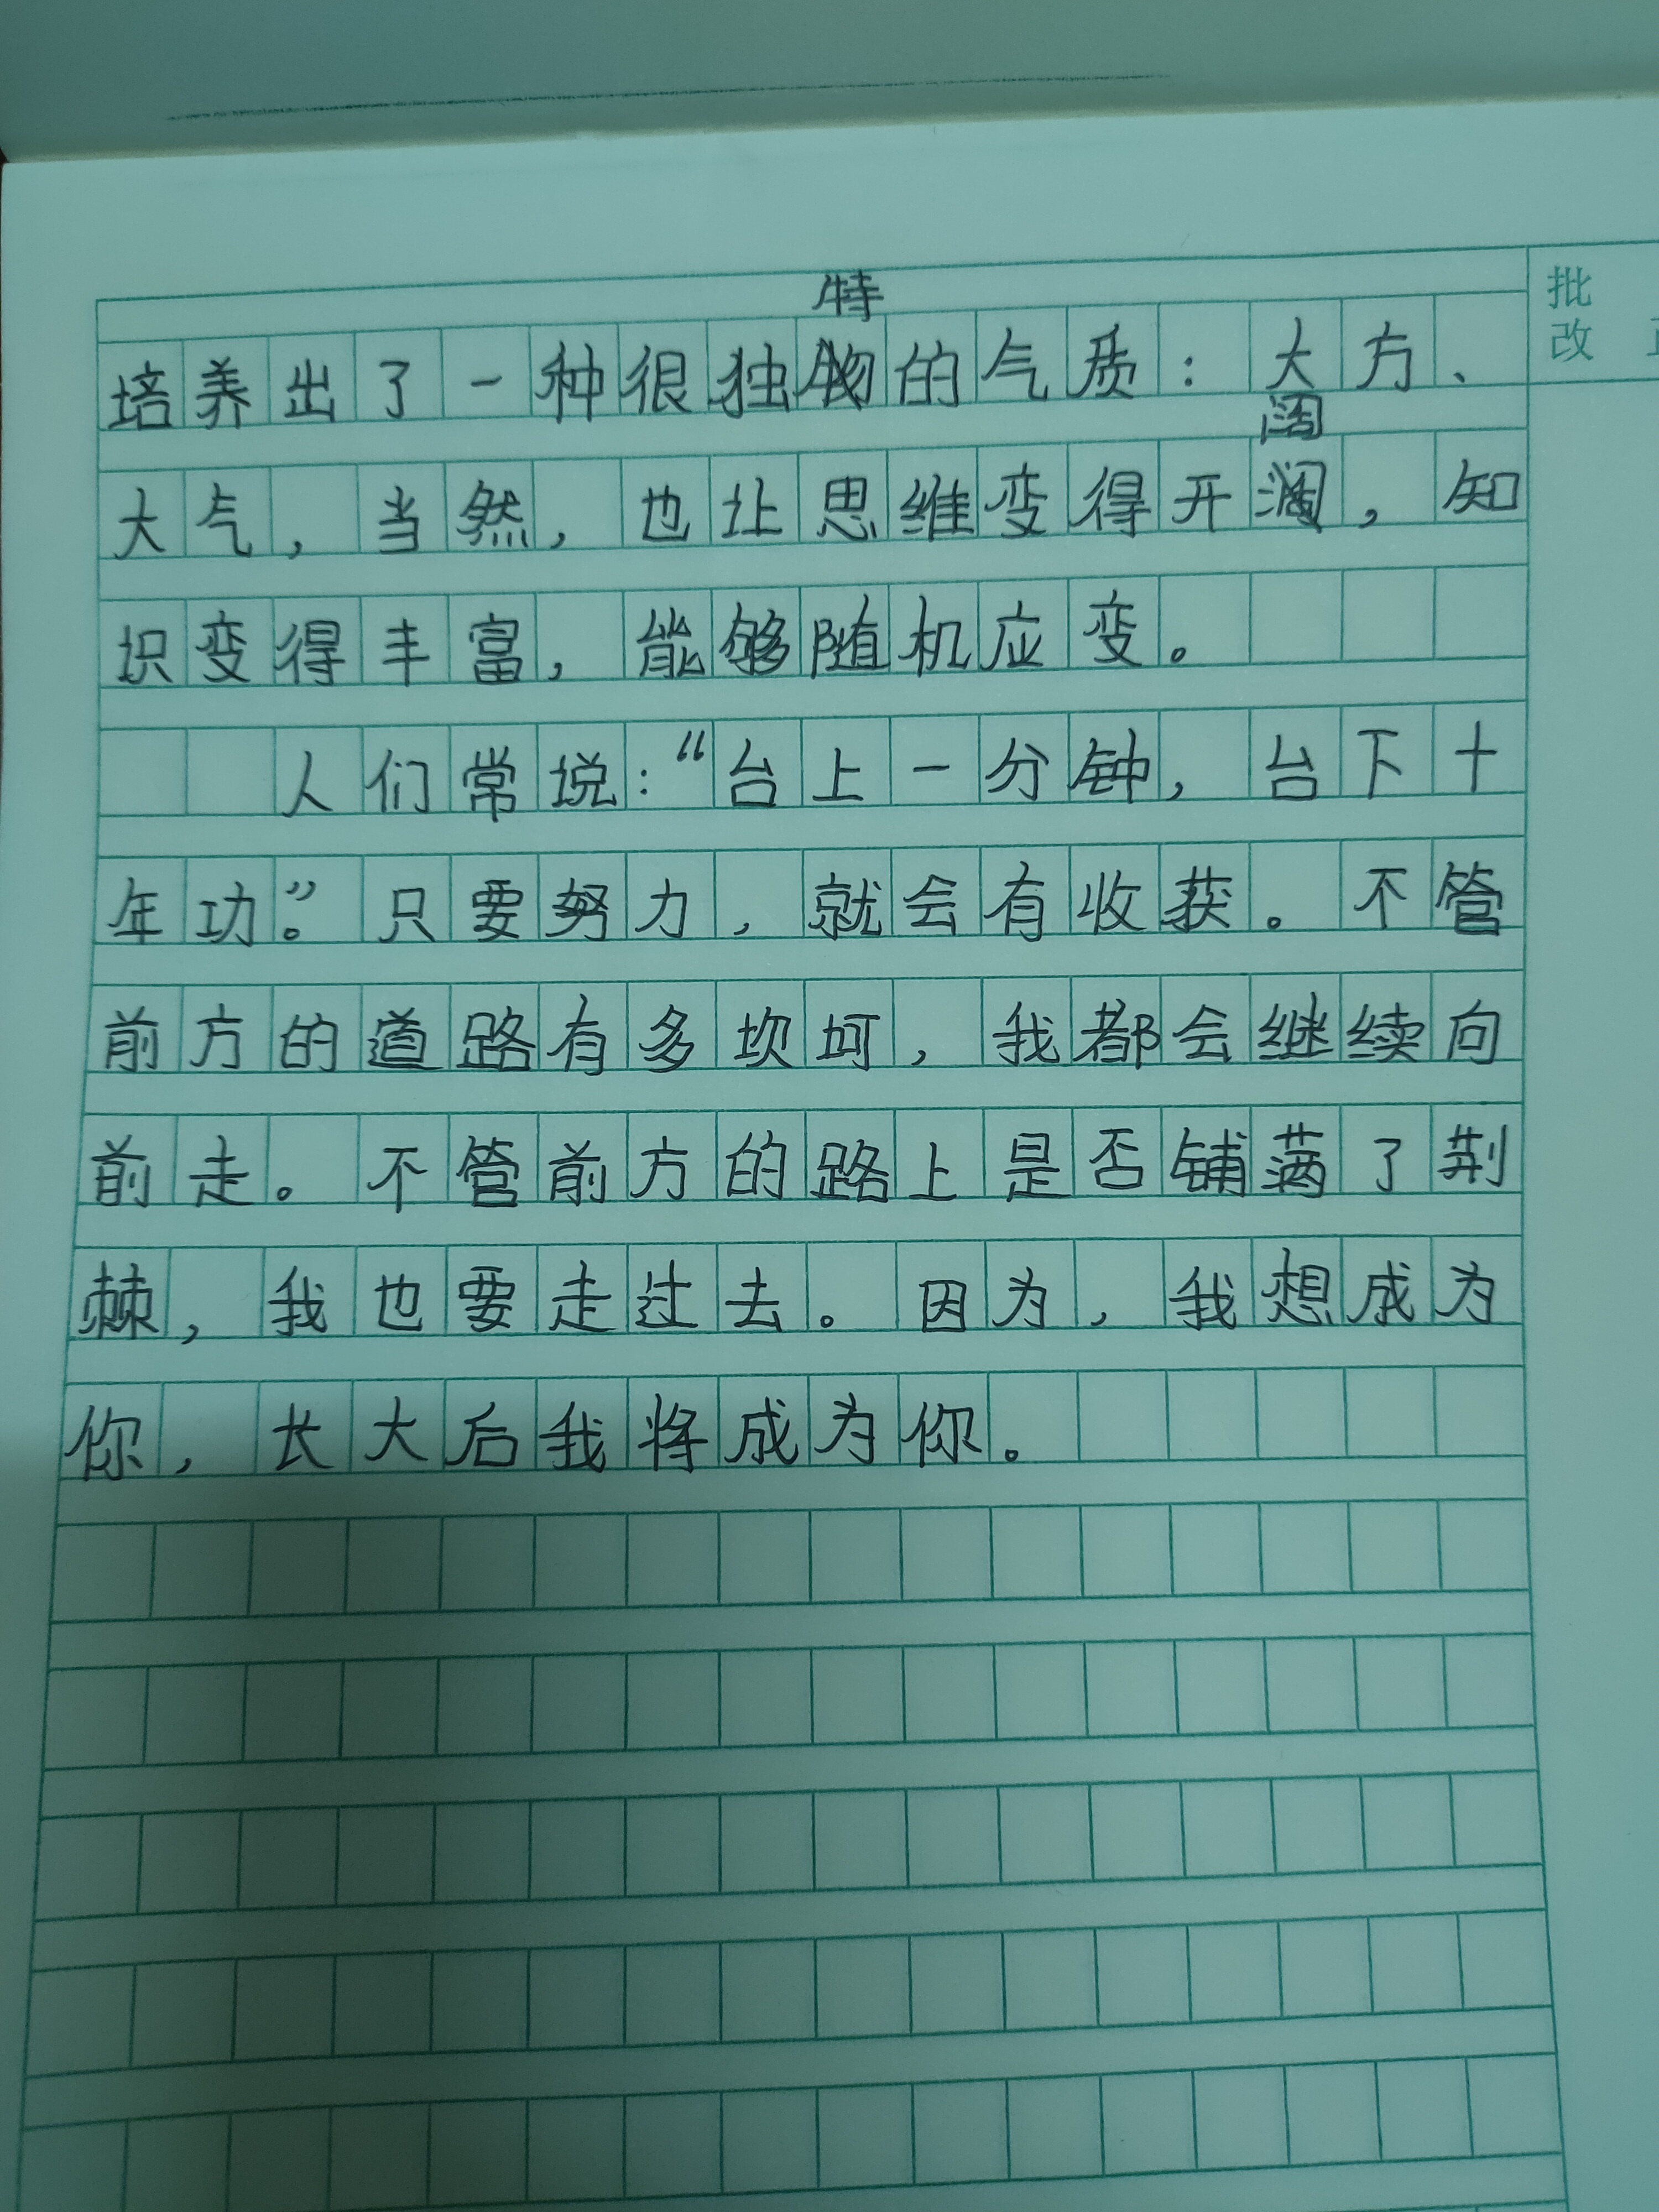 特
培养出了一种很独的气质：大方、
阔
大气，当然，也让思维变得开，知
识变得丰富，能够随机应变。
人们常说：“台上一分钟，台下十
年功。”只要努力，就会有收获。不管
前方的道路有多坎坷，我都会继续向
前走。不管前方的路上是否铺满了荆
棘，我也要走过去。因为，我想成为
你，长大后我将成为你。
批
改